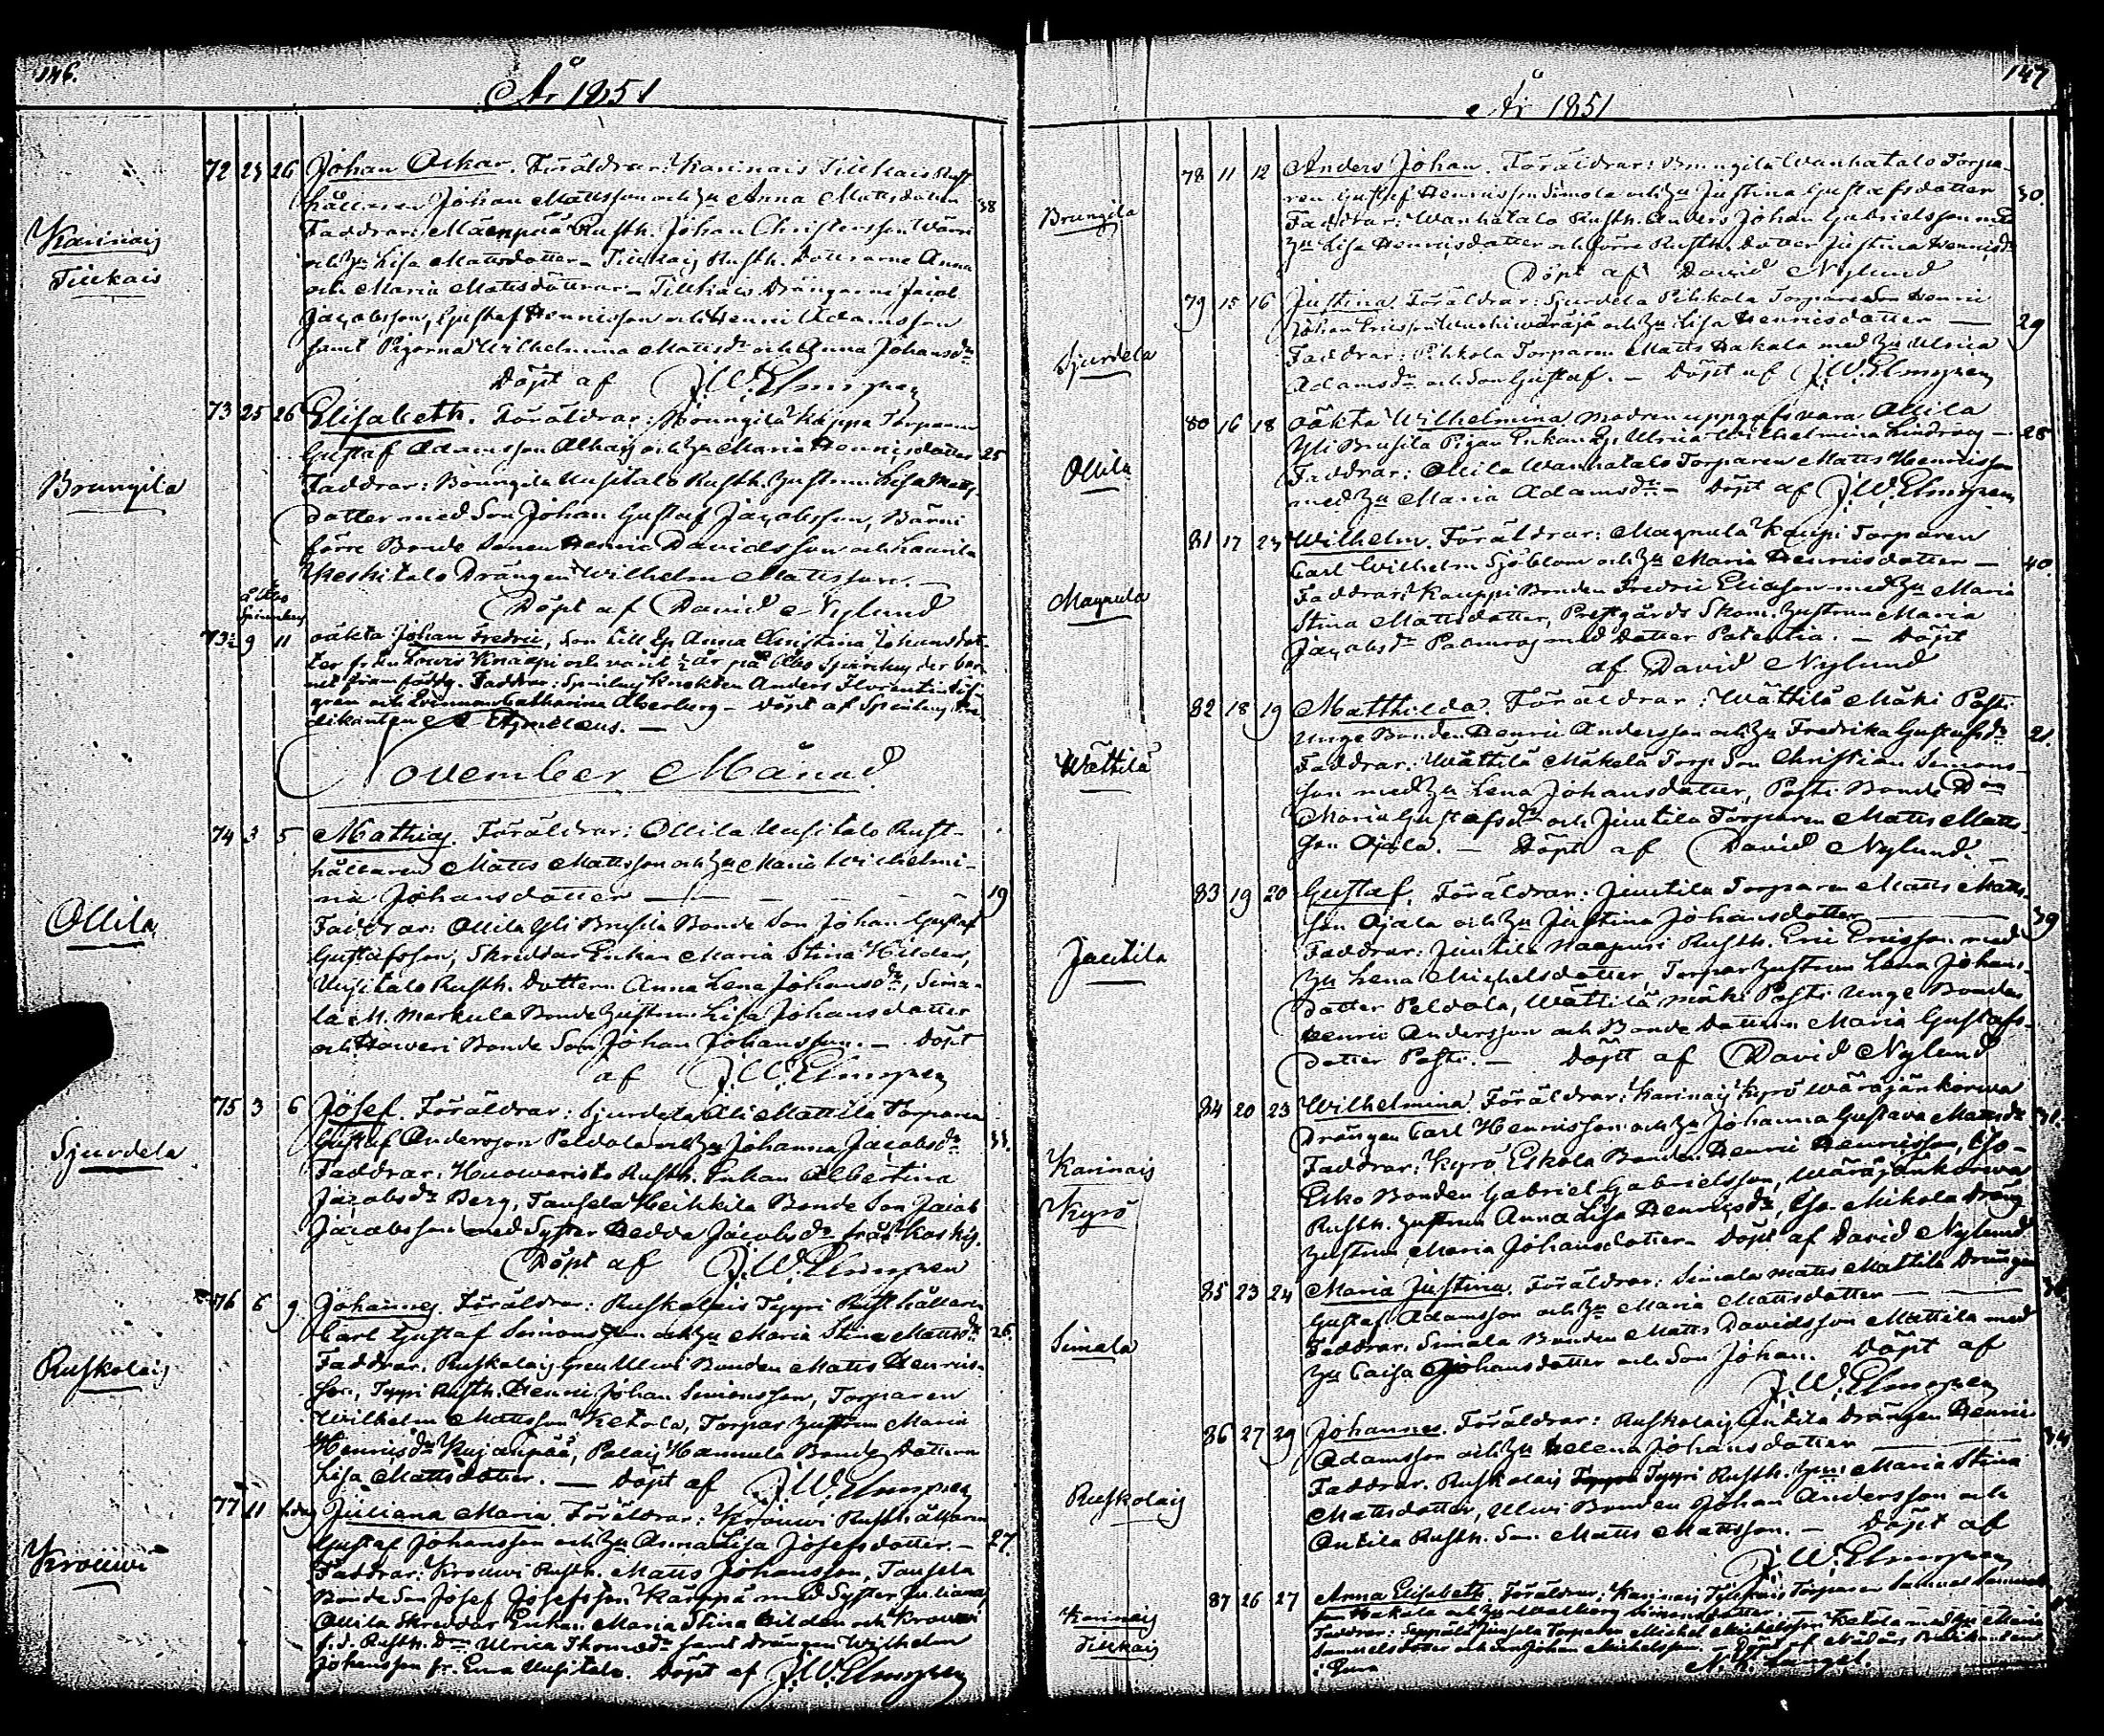 146.
År 1851
Karinais
Tillkais
72 25 26 Johan Oskar. Föräldrar: Karinais Tillkais Rust-
hållaren Johan Mattsson och Hu Anna Mattsdotter 38
Faddrar: Mäenpää Rusth. Johan Christersson Wäri
och Hu Lisa Mattsdotter – Tillkais Rusth. Döttrarne Anna
och Maria Mattsdöttrar – Tillkais Drängarne Jacob
Jacobsson, Gustaf Henricsson och Henric Adamsson
samt Pigorna Wilhelmina Mattsdr och Anna Johansdr
Döpt af J.W. Elmgren
Brungila
73 25 26 Elisabeth. Föräldrar: Brungila Käppä Torparen
Gustaf Adamsson Alhais och Hu Maria Henricsdotter 25
Faddrar: Brungila Uusitalo Rusth. Hustrun Lisa Matts-
dotter med Son Johan Gustaf Jacobsson, Bärni
förre Bonde Sonen Henric Davidsson och Laurila
Keskitalo Drängen Wilhelm Mattsson. –
Döpt af David Nylund
å Åbo
Spinnhus
73½ 9 11 oäkta Johan Fredric, Son till Anna Christina Johansdot-
ter från Lowis Knaapi och varit ½ år på Åbo Spinnhus der bar-
net framföddes. Faddrar: Spinhus Knekten Anders Florentin Sif-
gren och Qvinnan Catharina Åkerberg – Döpt af Spinhus Pre-
dikanten A. Aymelaus. –
November Månad
Ollila
74 3 5 Mathias. Föräldrar: Ollila Uusitalo Rust-
hållaren Matts Mattsson och Hu Maria Wilhelmi-
na Johansdotter – – – – 19
Faddrar: Ollila Yli Brusila Bonde Son Johan Gustaf
Gustafsson, Skreddar Enkan Maria Stina Hilden,
Uusitalo Rusth. Dottern Anna Lena Johansdr, Sima-
la M. Markula Bonde Hustrun Lisa Johansdotter
och Haveri Bonde Son Johan Johansson. – Döpt
af J.W. Elmgren
Sjurdela
75 3 6 Josef. Föräldrar: Sjurdela Ali Mattila Torparen
Gustaf Andersson Peldola och Hu Johanna Jacobsdr 33.
Faddrar: Huoweristo Rusth. Enkan Albertina
Jacobsdr Berg, Tausela Heikkilä Bonde Son Jacob
Jacobsson med Syster Hedda Jacobsdr från Koskis.
Döpt af J.W. Elmgren
Ruskolais
76 6 9 Johannes. Föräldrar: Ruskolais Typpi Rusthållaren
Carl Gustaf Simonsson och Hu Maria Stina Mattsdr 26.
Faddrar. Ruskolais Uluvi Bonden Matts Henrics-
son, Typpi Rusth. Henric Johan Simonsson, Torparen
Wilhelm Mattsson Ketola, Torpar Hustrun Maria
Henricsdr Kujanpää, Palais Hannula Bonde Dottern
Lisa Mattsdotter. – Döpt af J.W. Elmgren
Krouwi
77 11 Juliana Maria. Föräldrar: Krouwi Rusthållaren
Gustaf Johansson och Hu Anna Lisa Josefsdotter. – 27.
Faddrar: Krouwi Rusth. Matts Johansson, Tausela
Bonde Son Josef Josefsson Käppä med Syster Juliana,
Ollila Skreddar Enkan Maria Stina Hilden och Krouwi
f.d. Rusth. Ulrica Thomasdr samt Drängen Wilhelm
Johansson fr. Eura Uusitalo. Döpt af J.W. Elmgren
147
År 1851
Brungila
78 11 12 Anders Johan. Föräldrar: Brungila Wanhatalo Torpa-
ren Gustaf Henricsson Simola och Hu Justina Gustafsdotter 30.
Faddrar: Wanhatalo Rusth. Anders Johan Gabrielsson med
Hu Lisa Henricsdotter och förre Rusth. dotter Justina Henricsdr
Döpt af David Nylund
Sjurdela
79 15 16 Justina. Föräldrar: Sjurdela Pihkola Torpare Son Henric
Johan Ericsson och Hu Lisa Henricsdotter – 29
Faddrar: Pihkola Torparen Matts Hakala med Hu Ulrica
Adamsdr och Son Gustaf. – Döpt af J.W. Elmgren
Ollila
80 16 18 oäkta Wilhelmina modren uppgafs vara Ollila
Yli Brusila Pigan Enkan Ulrica Wilhelmina Lindroos – 28
Faddrar: Ollila Wanhatalo Torparen Matts Henricsson
med Hu Maria Adamsdr – Döpt af J.W. Elmgren
Magnula
81 17 23 Wilhelm. Föräldrar: Magnula Kauppi Torparen
Carl Wilhelm Sjöblom och Hu Maria Henricsdotter – 40.
Faddrar: Kauppi Bonden Fredric Eliasson med Hu Maria
Stina Mattsdotter, Prestgårds Skom. Hustrun Maria
Jacobsdr Palmroos med Dotter Patentia. – Döpt
af David Nylund
Wättilä
82 18 19 Matthilda. Föräldrar: Wättilä Mäki Posti
Unge Bonden Henric Andersson och Hu Fredrika Gustafsdr 21.
Faddrar: Wättilä Mäkelä Torp. Son Christian Simons-
son med Hu Lena Johansdotter, Posti Bonde Don
Maria Gustafsdr och Juutila Torparen Matts Matts-
son Ojala. – Döpt af David Nylund. –
Juutila
83 19 20 Gustaf. Föräldrar: Juutila Torparen Matts Matts-
son Ojala och Hu Justina Johansdotter – 39
Faddrar: Juutila Naapuri Rusth. Eric Ericsson med
Hu Lena Michelsdotter, Torpar Hustrun Lena Johans-
dotter Peldola, Wättilä Mäki Posti Unge Bonden
Henric Andersson och Bonde Dottern Maria Gustafs-
dotter Posti. – Döpt af David Nylund
Karinais
Kyrö
84 20 23 Wilhelmina. Föräldrar: Karinais Kyrö Wäräjänkorwa
Drängen Carl Henricsson och Hu Johanna Gustava Mattsdr 31.
Faddrar: Kyrö Eskola Bonden Henric Henricsson, Iso-
Esko Bonden Gabriel Gabrielsson, Wäräjänkorwa
Rusth. Hustrun Anna Lisa Henricsdr, Iso-Mikola Dräng
Hustrun Maria Johansdotter – Döpt af David Nylund
Simala
85 23 24 Maria Justina. Föräldrar: Simala Matts Mattila Drängen
Gustaf Adamsson och Hu Maria Mattsdotter –
Faddrar: Simala Bonden Matts Davidsson Mattila med
Hu Caisa Johansdotter och Son Johan. Döpt af
J.W. Elmgren
Ruskolais
86 27 29 Johannes. Föräldrar: Ruskolais Antila Drängen Henric
Adamsson och Hu Helena Johansdotter – 34
Faddrar. Ruskolais Typpi Rusth. Hu Maria Stina
Mattsdotter, Uluvi Bonden Johan Andersson och
Antila Rusth. Son Matts Mattsson. – Döpt af
J.W. Elmgren
Karinais
Tillkais
87 26 27 Anna Elisabeth. Föräldrar: Karinais Tillkais Torparen Samuel Samuels-
son Hakala och Hu Walborg Simonsdotter. –
Faddrar: Seppälä Juusela Torparen Michel Michelsson Ketola med Hu Maria
Samuelsdotter och Son Johan Michelsson. – Döpt af Nådårs Predikanten
i Eura